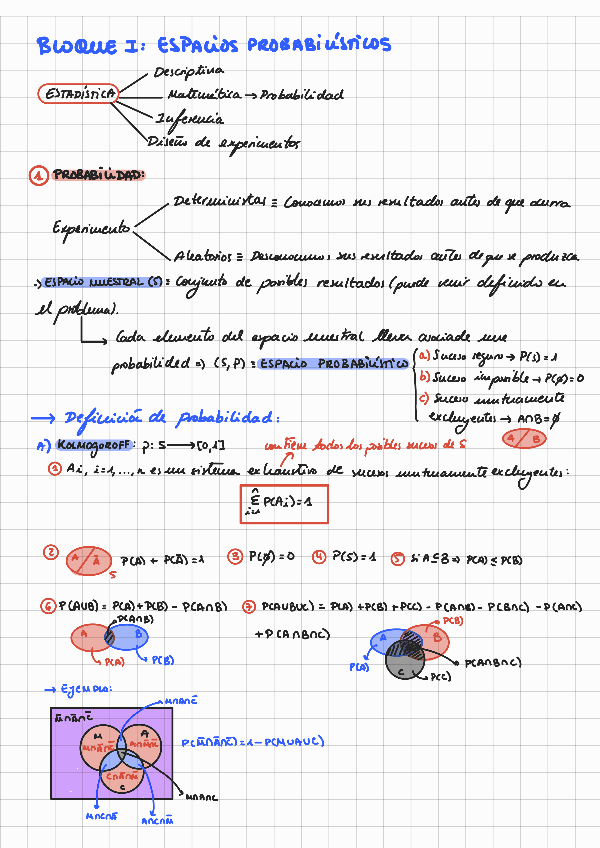 BLOQUE I: ESPACIOS PROBABILÍSTICOS
Descriptiva
ESTADÍSTICA
Matemática → Probabilidad
Inferencia
Diseño de experimentos
1 PROBABILIDAD:
Deterministas ≡ Conocemos sus resultados antes de que ocurra
Experimento
Aleatorios ≡ Desconocemos sus resultados antes de que se produzca
→ ESPACIO MUESTRAL (S) ≡ Conjunto de posibles resultados (puede venir definido en
el problema).
Cada elemento del espacio muestral lleva asociado una
probabilidad ⇒ (S, P) ≡ ESPACIO PROBABILÍSTICO
a) Suceso seguro → P(S) = 1
b) Suceso imposible → P(∅) = 0
c) Sucesos mutuamente
excluyentes → A∩B = ∅
A B
→ Definición de probabilidad:
A) KOLMOGOROFF: p: S → [0,1]
contiene todos los posibles sucesos de S
1 Ai, i=1,...,n es un sistema exhaustivo de sucesos mutuamente excluyentes:
n
Σ P(Ai) = 1
i=1
2 A Ā S P(A) + P(Ā) = 1 3 P(∅) = 0 4 P(S) = 1 5 Si A⊆B ⇒ P(A) ≤ P(B)
6 P(A∪B) = P(A) + P(B) - P(A∩B) 7 P(A∪B∪C) = P(A) + P(B) + P(C) - P(A∩B) - P(B∩C) - P(A∩C)
+ P(A∩B∩C)
P(A∩B)
A B
P(A)
P(B)
P(B)
A B
P(A)
P(A∩B∩C)
C
P(C)
→ EJEMPLO:
M∩A∩C̄
M̄∩Ā∩C̄
M A
M∩Ā∩C̄ A∩M̄∩C̄
P(M̄∩Ā∩C̄) = 1 - P(M∪A∪C)
C∩Ā∩M̄
C
M∩A∩C
M∩C∩Ā
A∩C∩M̄